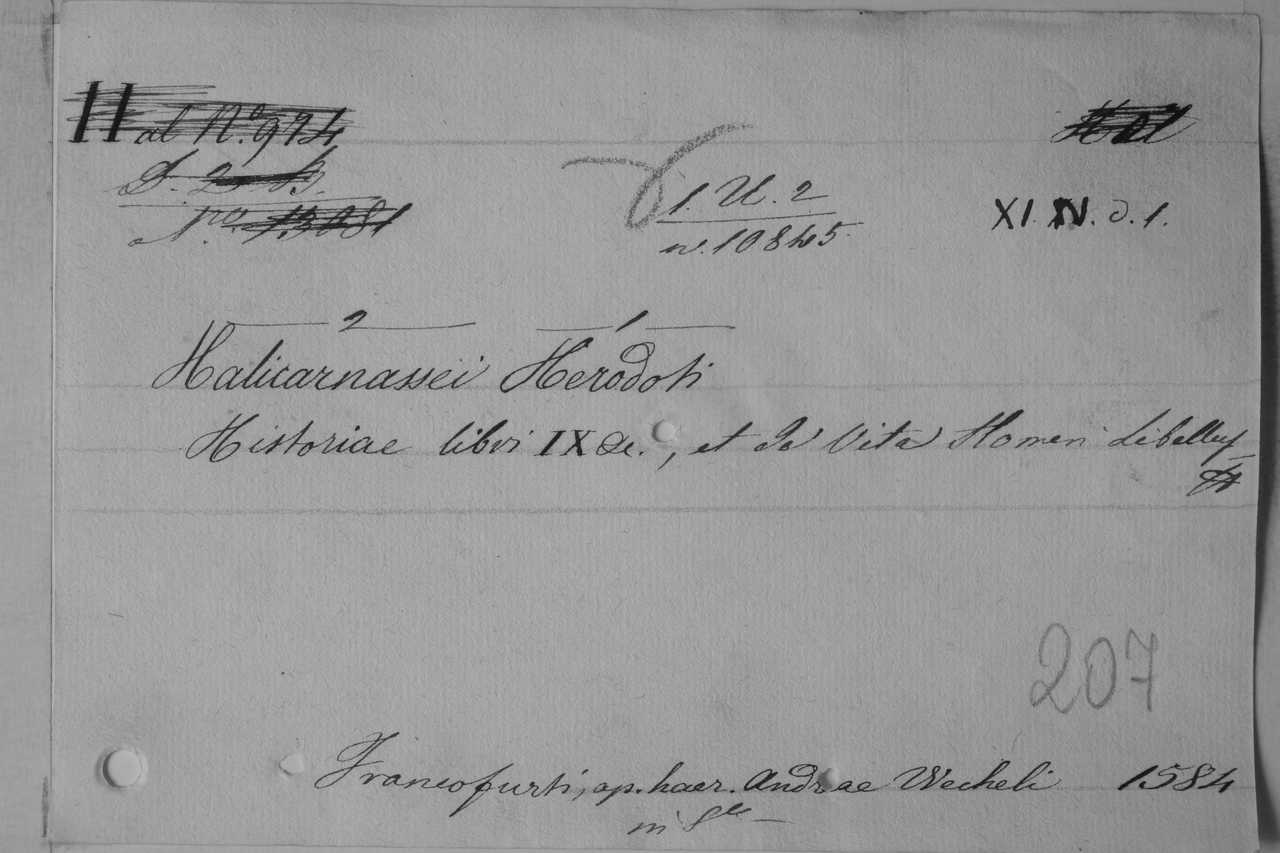 Hal N.º 974
S. 2. B.
N.ro 13081
1. U. 2
n. 10845.
XI. N. d. 1.
2 1
Halicarnassei Herodoti
Historiae libri IX &c., et de Vita Homeri Libellus
207
Francofurti, ap. haer. Andreae Wecheli 1584
in 8º